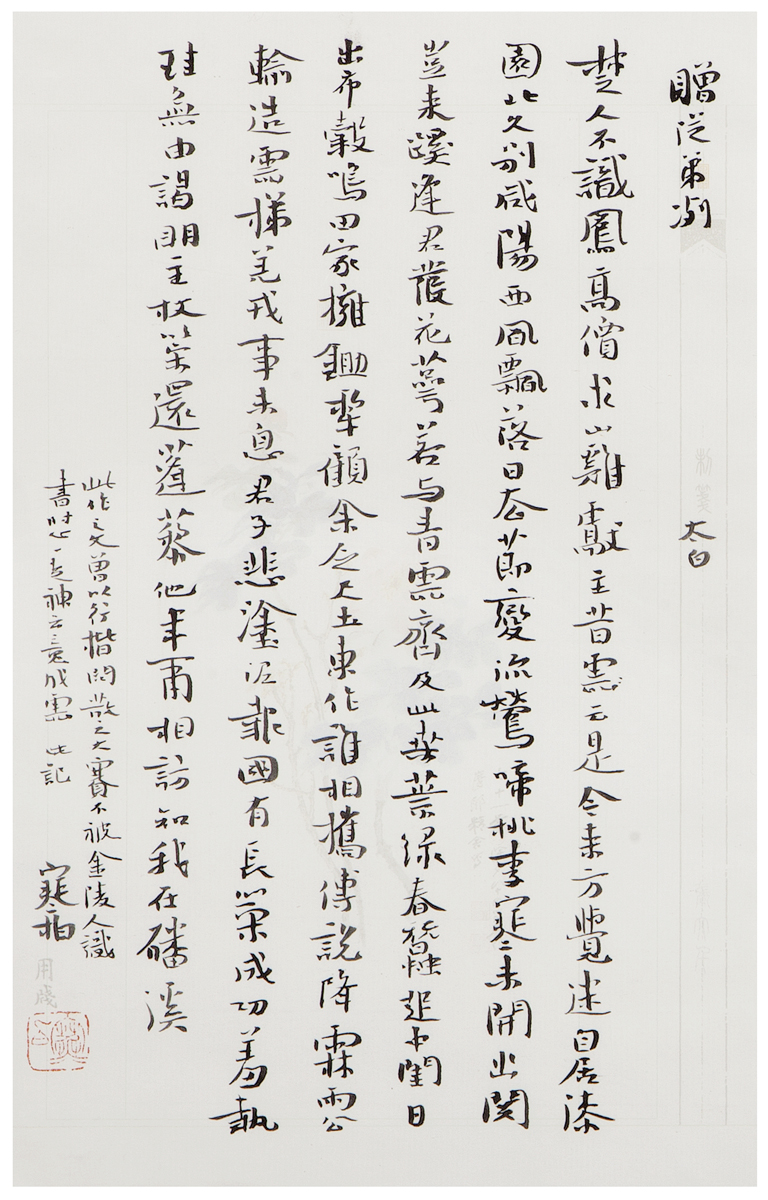 贈從弟冽
太白
楚人不識鳳高價求山雞獻主昔雲云是今来方覺迷自居漆
園北久别咸陽西風飄落日去節變流鶯啼桃李寒未開出関
豈来蹊逢君發花萼若与青雲齊及此桒葉緑春蠶起中閨日
出布穀鳴田家擁鋤犂顧余乏尺土東作誰相攜傅説降霖雨公
輸造雲梯羌戎事未息君子悲塗泥報國有長策成功羞執
珪無由謁明主杖策還蓬藜他年爾相訪知我在磻溪
此作之文曾以行楷問之大賽不被金陵人識
書時心一走神云竟成雲 此記
寒柏
用牋